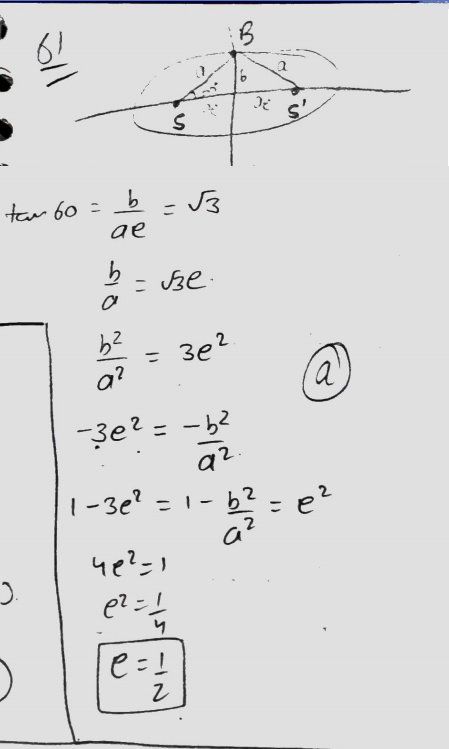 61
B
a a
b
S S'
tan 60 = b/ae = √3
b/a = √3e
b²/a² = 3e²
a
-3e² = -b²/a²
1-3e² = 1 - b²/a² = e²
4e²=1
e²=1/4
e=1/2